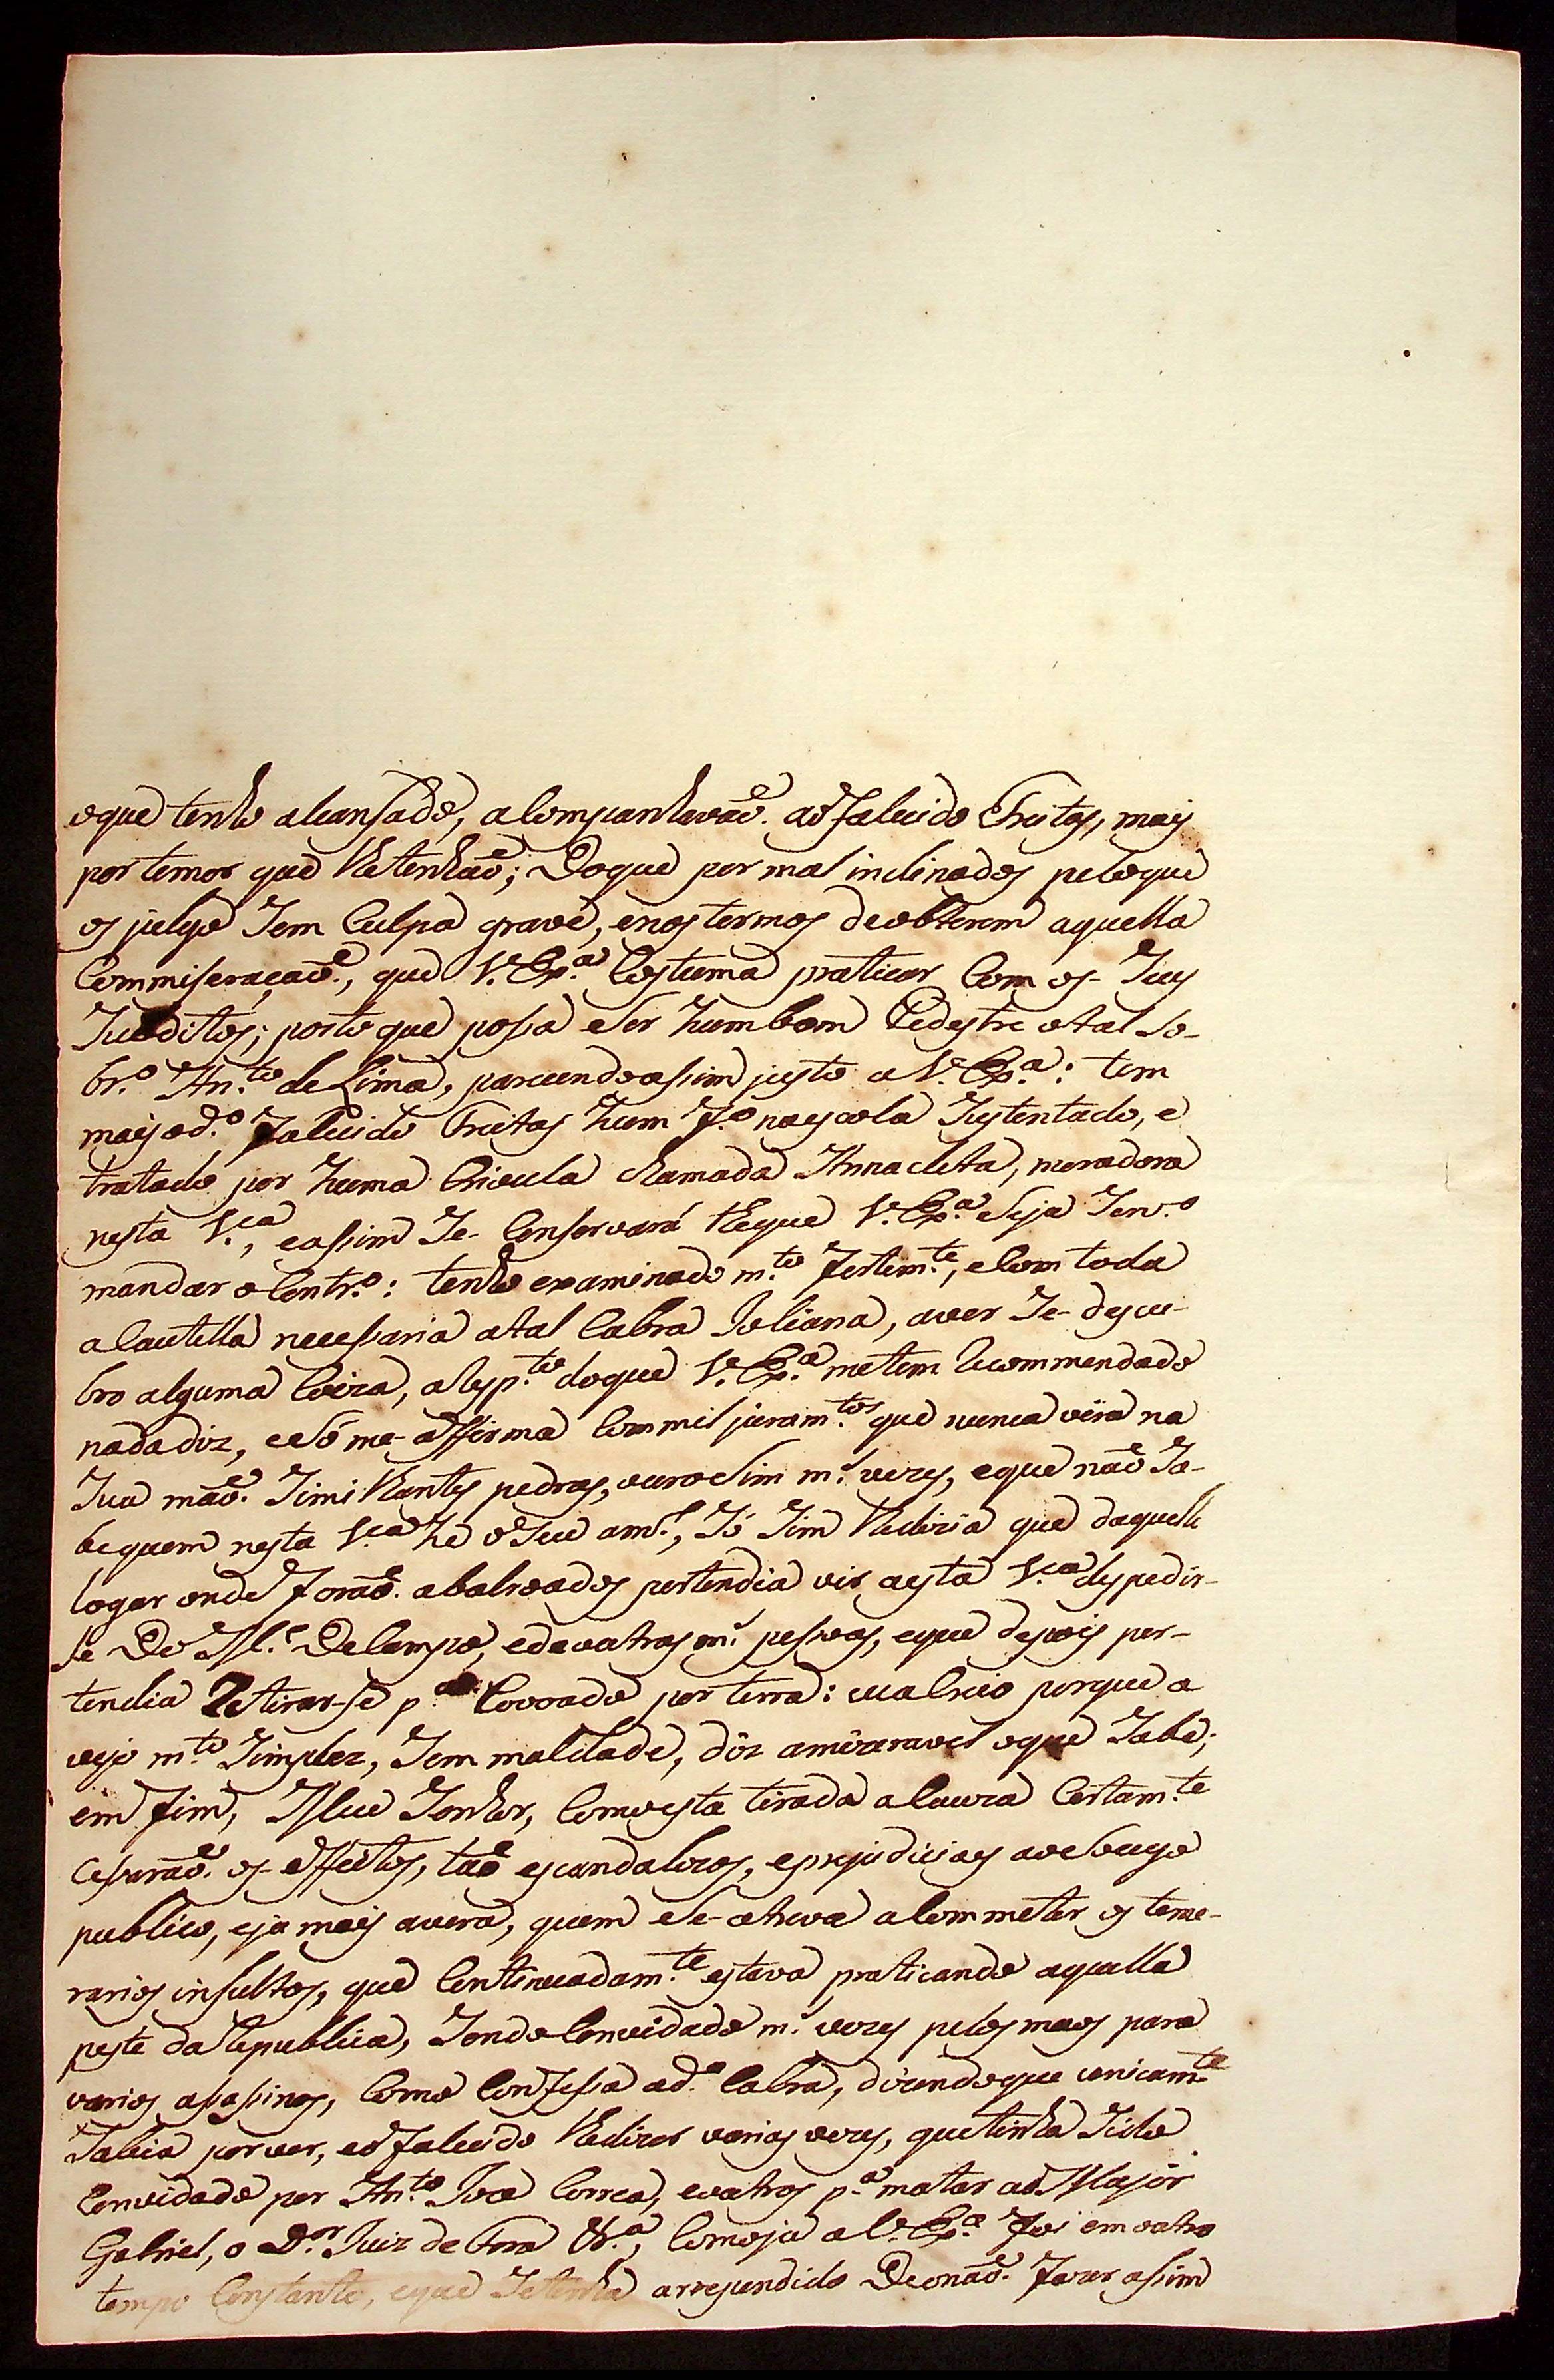 oque tenho alcansado, acompanhavaõ. aõ falecido Freitas, mais
por temor que lhetenhaõ; Doque por mal inclinados peloque
os julgo Sem Culpa grave, enos termos deobterem aquella
Commiseraçaõ., que V. Ex.ª Costuma praticar Com os Seus
Subditos; posto que posса eSer hum bom Pedestre otal So-
br.º An.to de Lima, parecendo assim justo a V. Ex.ª: tem
mais od.º falecido Freitas hum f.º naescola Sustentado, e
tratado por huma Crioula chamada Annacleta, moradora
nesta V.ca, eassim Se Conservará theque V. Ex.ª Seja Serv.º
mandar oContr.º: tenho examinado m.to fortem.te, eCom toda
aCautella necessaria atal Cabra Joliana, aver Se descu-
bro alguma Coiza, aResp.to doque V. Ex.ª metem Recommendado
nada diz, eeSó me affirma Commil juram.tos que nunca vira na
Sua maõ. Simi lhantes pedras, ouro eSim m.s vezes, eque naõ Sa-
be quem nesta V.ca hé oSeu am.º, Só Sim lhediria que daquelle
logar onde foraõ. abalroados pertendia vir aesta V.ca despedir-
Se Do M.e DeCampo, edeoutras m.s pessoas, eque depois per-
tendia Retirar-Se p.ª Covado por terra: eu aCreio porque a
vejo m.to Simplez, Sem malidade, diz amiseravel oque Sabe;
em fim, Meu Senhor, Comoesta tirada aCauza Certam.te
Cessaraõ. os effeitos, taõ escandalozos, eprejudiciaes aoeSocego
publico, eja mais avera, quem eSe-atreva aCommeter os teme-
rarios insultos, que Continuadam.te estava praticando aquella
peste da Republica, SendoConvidado m.s vezes pelos maos para
varios assassinos, Como Confessa ad.ª Cabra, dizendoque unicam.te
Sabia por ver, eo falecido lhedizer varias vezes, quetinha Sido
Convidado por An.to Joze Correa, eoutros p.ª matar aõ Major
Gabriel, o D.or Juiz de Fora &.ª, Comoja aV. Ex.ª foi em outro
tempo Constante, eque Setinha arrependido Deonaõ. fazer assim